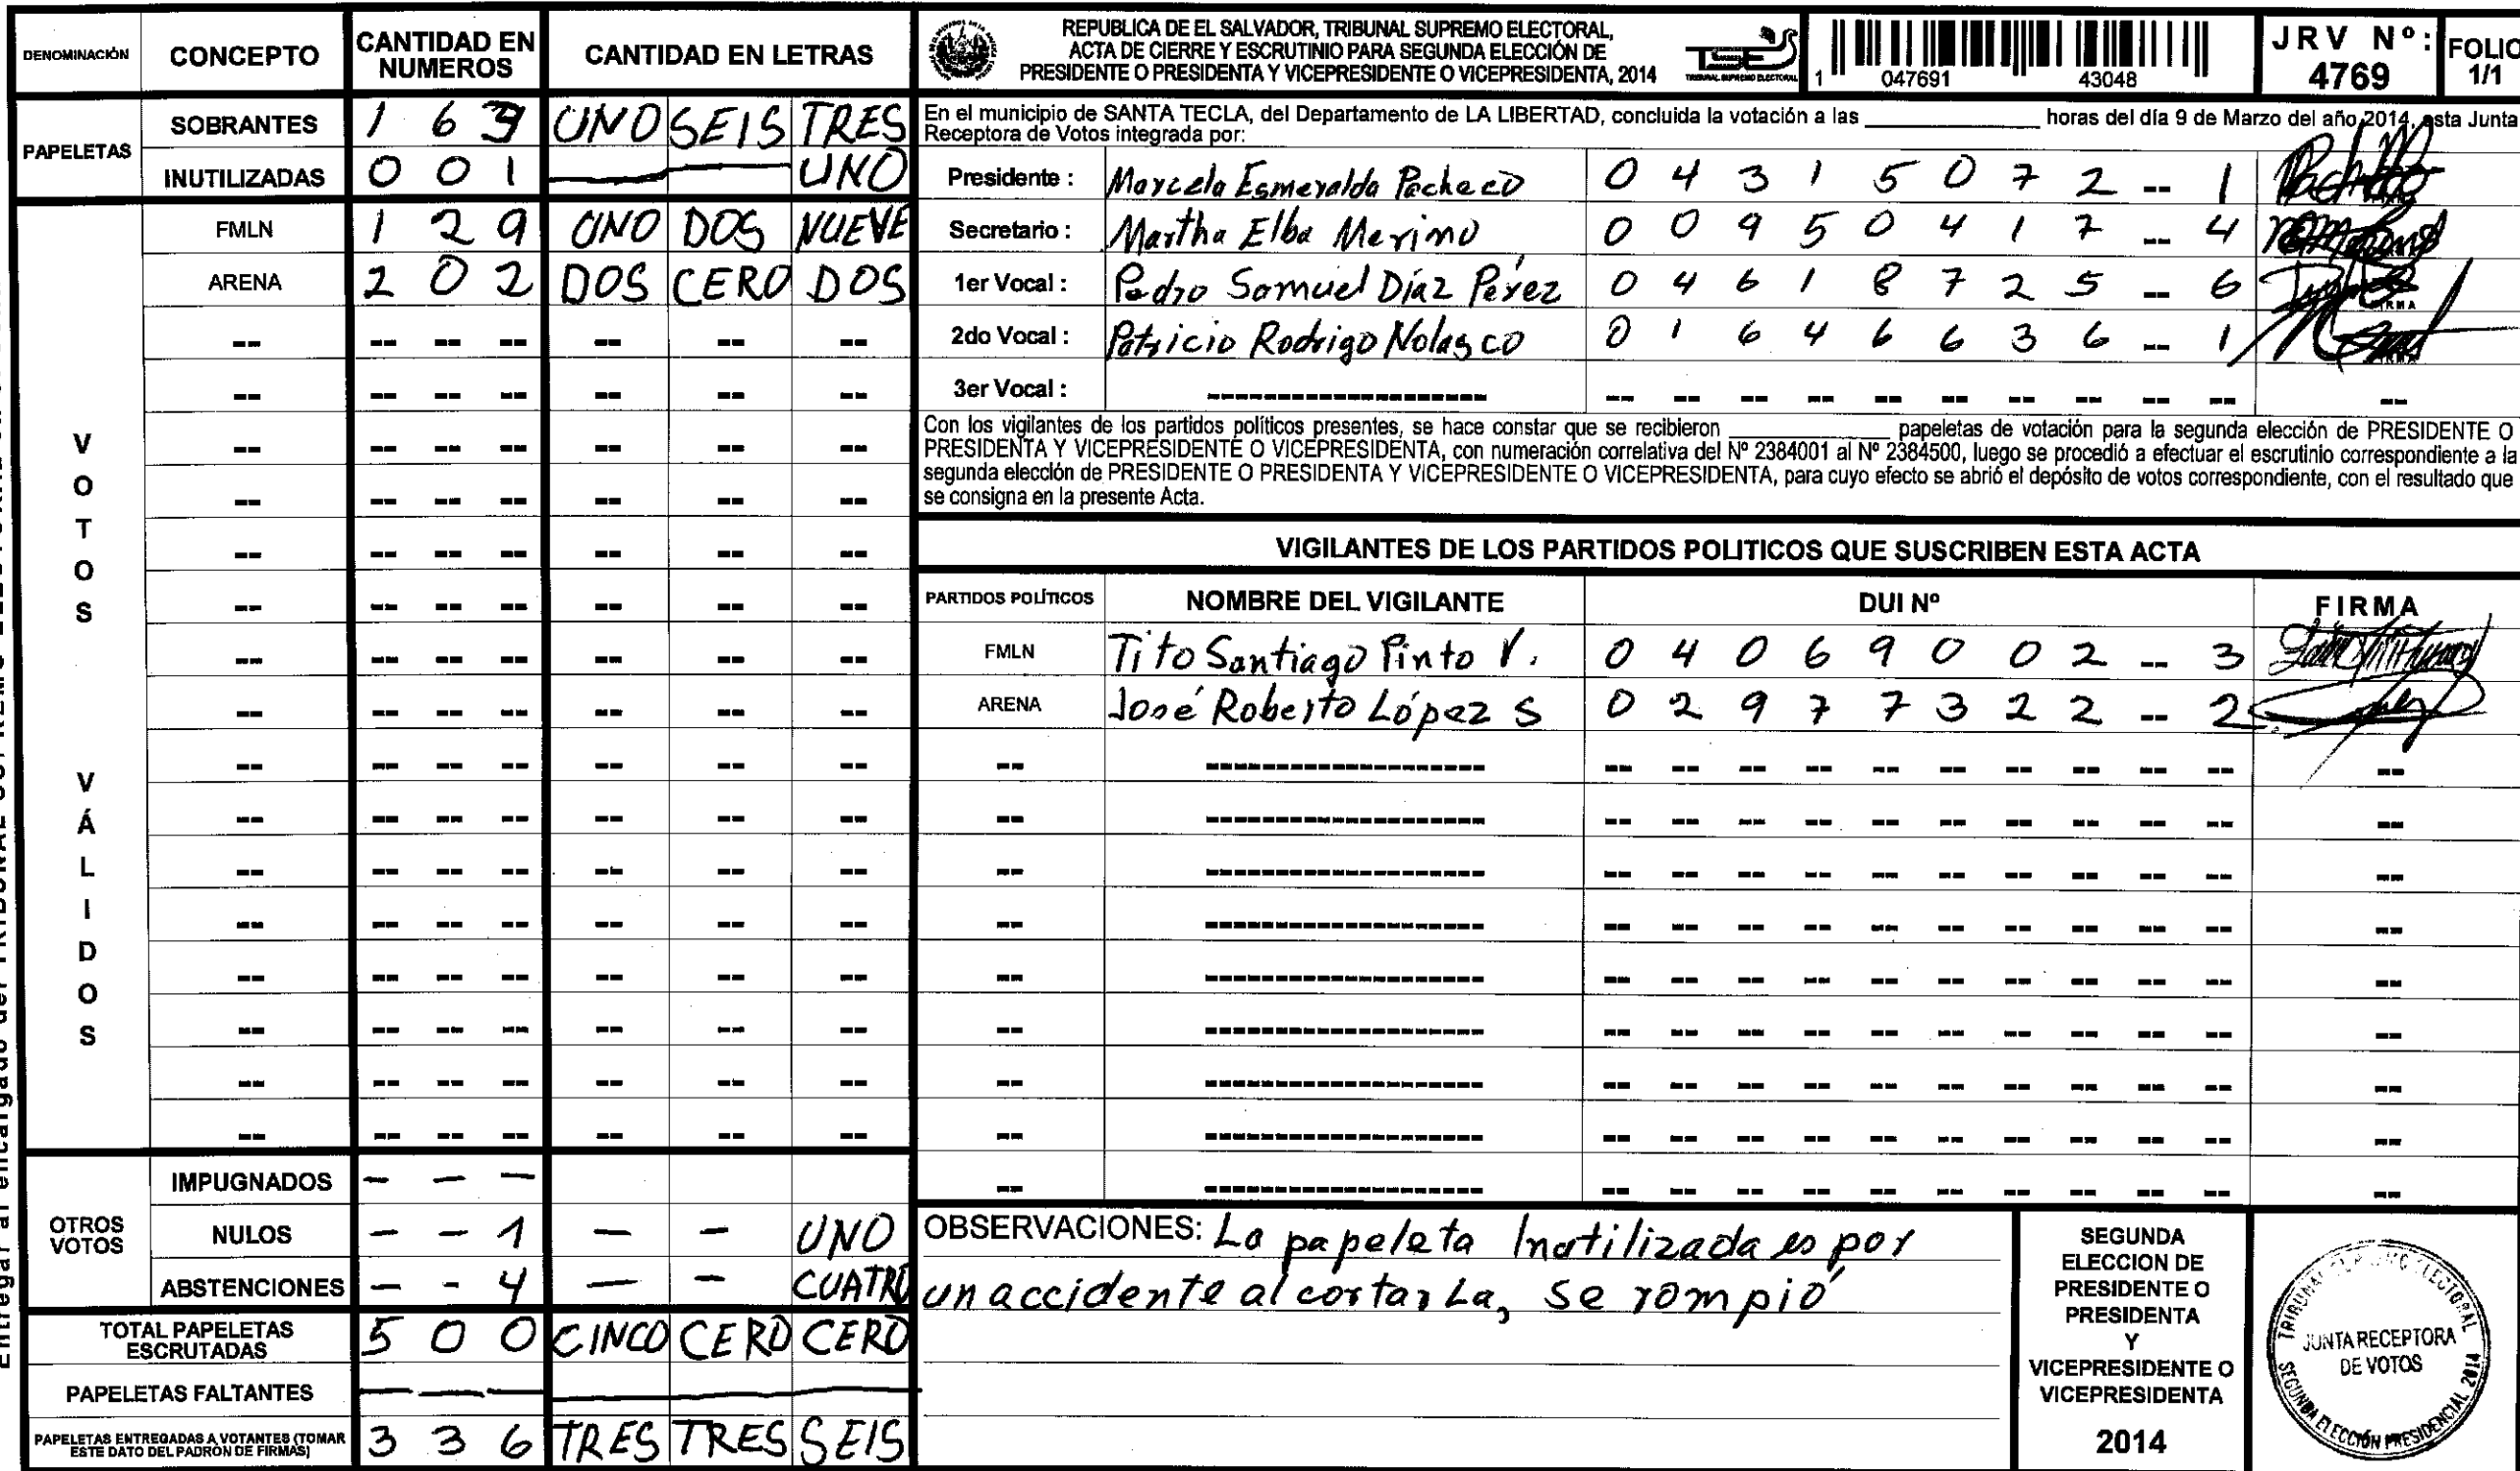 DENOMINACIÓN CONCEPTO CANTIDAD EN NUMEROS CANTIDAD EN LETRAS
PAPELETAS
SOBRANTES 1 6 3 UNO SEIS TRES
INUTILIZADAS 0 0 1 — — UNO
VOTOS VÁLIDOS
FMLN 1 2 9 UNO DOS NUEVE
ARENA 2 0 2 DOS CERO DOS
OTROS VOTOS
IMPUGNADOS - - -
NULOS - - 1 - - UNO
ABSTENCIONES - - 4 - - CUATRO
TOTAL PAPELETAS ESCRUTADAS 5 0 0 CINCO CERO CERO
PAPELETAS FALTANTES — — —
PAPELETAS ENTREGADAS A VOTANTES (TOMAR ESTE DATO DEL PADRÓN DE FIRMAS) 3 3 6 TRES TRES SEIS
REPUBLICA DE EL SALVADOR, TRIBUNAL SUPREMO ELECTORAL,
ACTA DE CIERRE Y ESCRUTINIO PARA SEGUNDA ELECCIÓN DE
PRESIDENTE O PRESIDENTA Y VICEPRESIDENTE O VICEPRESIDENTA, 2014
TSE
TRIBUNAL SUPREMO ELECTORAL
1 047691 43048
JRV Nº: 4769
FOLIO 1/1
En el municipio de SANTA TECLA, del Departamento de LA LIBERTAD, concluida la votación a las ____ horas del día 9 de Marzo del año 2014, esta Junta
Receptora de Votos integrada por:
Presidente : Marcela Esmeralda Pacheco 0 4 3 1 5 0 7 2 -- 1
Secretario : Martha Elba Merino 0 0 9 5 0 4 1 7 -- 4
1er Vocal : Pedro Samuel Díaz Pérez 0 4 6 1 8 7 2 5 -- 6
2do Vocal : Patricio Rodrigo Nolasco 0 1 6 4 6 6 3 6 -- 1
3er Vocal : --
Con los vigilantes de los partidos políticos presentes, se hace constar que se recibieron ____ papeletas de votación para la segunda elección de PRESIDENTE O
PRESIDENTA Y VICEPRESIDENTE O VICEPRESIDENTA, con numeración correlativa del Nº 2384001 al Nº 2384500, luego se procedió a efectuar el escrutinio correspondiente a la
segunda elección de PRESIDENTE O PRESIDENTA Y VICEPRESIDENTE O VICEPRESIDENTA, para cuyo efecto se abrió el depósito de votos correspondiente, con el resultado que
se consigna en la presente Acta.
VIGILANTES DE LOS PARTIDOS POLITICOS QUE SUSCRIBEN ESTA ACTA
PARTIDOS POLÍTICOS NOMBRE DEL VIGILANTE DUI Nº FIRMA
FMLN Tito Santiago Pinto V. 0 4 0 6 9 0 0 2 -- 3
ARENA José Roberto López S 0 2 9 7 7 3 2 2 -- 2
OBSERVACIONES: La papeleta Inutilizada es por
un accidente al cortar La, se rompió
SEGUNDA
ELECCION DE
PRESIDENTE O
PRESIDENTA
Y
VICEPRESIDENTE O
VICEPRESIDENTA
2014
TRIBUNAL SUPREMO ELECTORAL
JUNTA RECEPTORA
DE VOTOS
SEGUNDA ELECCIÓN PRESIDENCIAL 2014